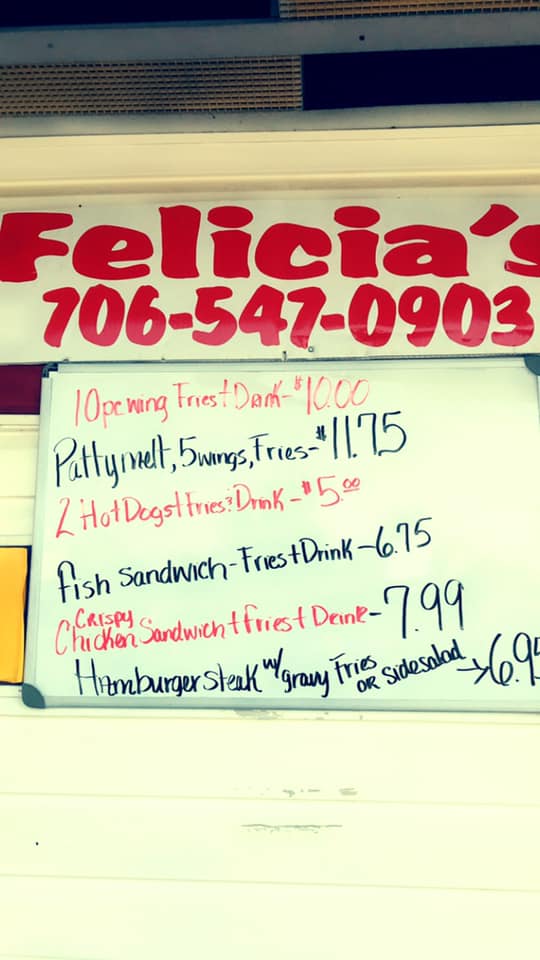 Felicia's
706-547-0903
10pc wing Fries+Drink-$10.00
Pattymelt, 5wings, Fries-$11.75
2 Hot Dogs+Fries&Drink-$5.00
fish sandwich-Fries+Drink-6.75
Crispy
Chicken Sandwich+fries+Drink-7.99
Hamburger Steak w/ gravy Fries
OR sidesalad →6.9